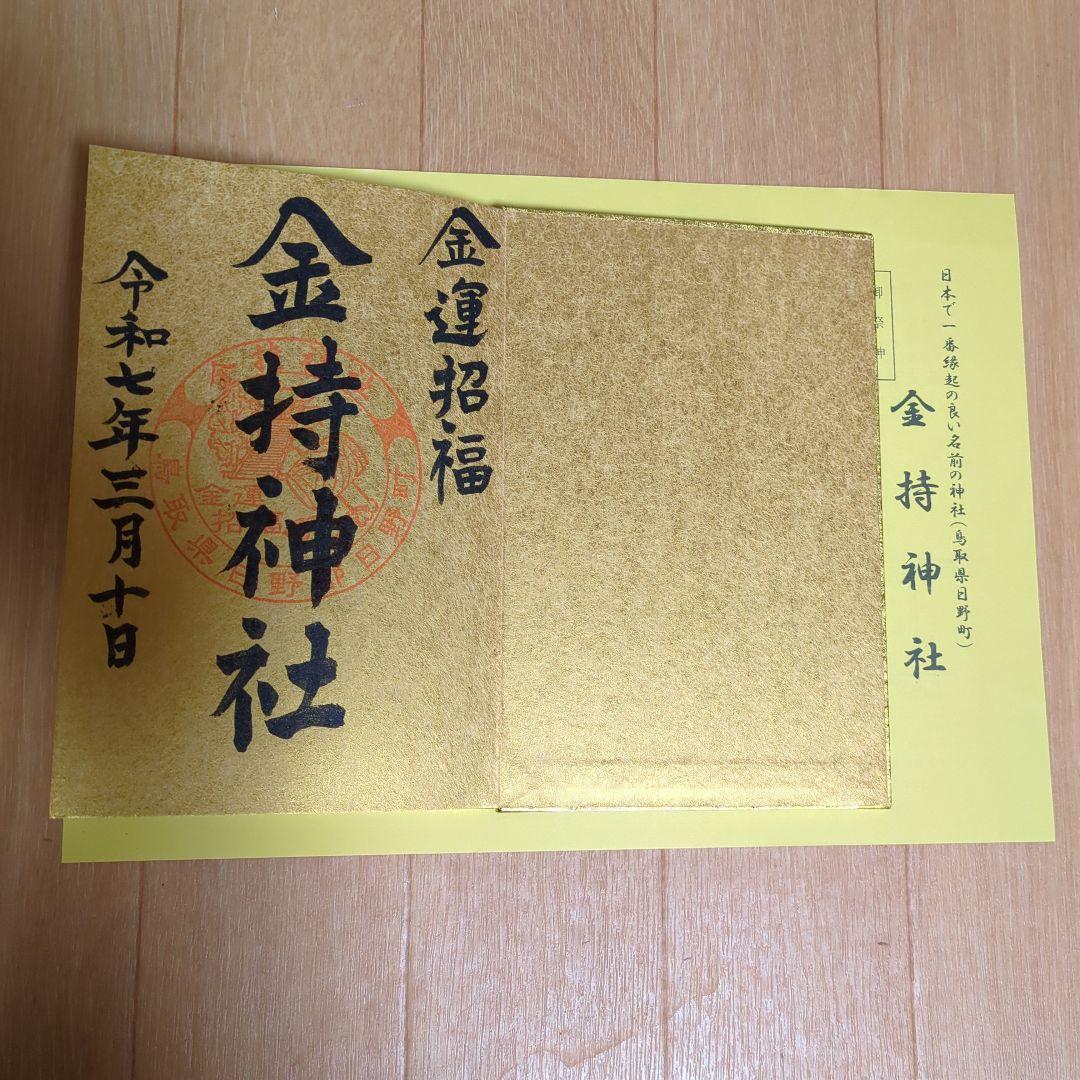 日本で一番縁起の良い名前の神社(鳥取県日野町)
金持神社
御祭神
金運招福
金持神社
鳥取県日野郡日野町
令和七年三月十日